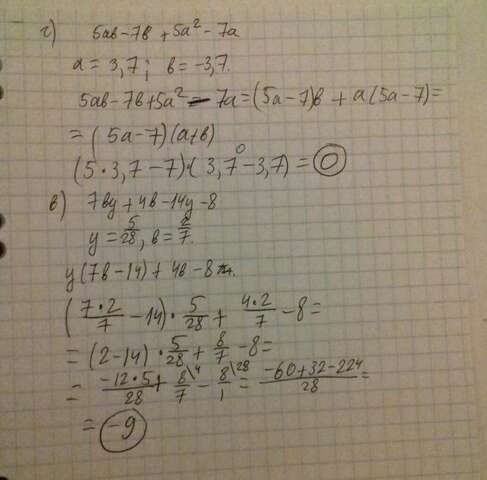 г) 5ab-7b+5a²-7a
a=3,7; b=-3,7.
5ab-7b+5a²-7a=(5a-7)b+a(5a-7)=
=(5a-7)(a+b)
(5·3,7-7)·(3,7-3,7)=0
0
в) 7by+4b-14y-8
y=5/28, b=2/7.
y(7b-14)+4b-8
(7·2/7-14)·5/28+4·2/7-8=
=(2-14)·5/28+8/7-8=
=-12·5/28+8/7\4-8/1\28=-60+32-224/28=
=-9